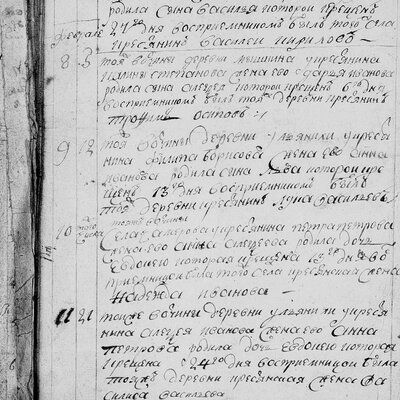 родила сына василья которои крещенъ
27 дня восприемникомъ былъ того села
февраль
крестьянинъ василеи кириловъ
8 3 тоя вотчины деревни у крестьянина
степанова жена ево дарья иванова
родила сына алеѯея которои крещенъ 6 дня
восприемникомъ былъ тои деревни крестьянинъ
трофимъ осиповъ
9 12 тои вотчины деревни ульянихи у кресть
нина филипа борисова жена ево анна
иванова родила сына льва которои кре
щенъ 13 дня восприемникомъ былъ
тоя деревни крестьянинъ лука васильевъ
10 тоя вотчины
села у крестьянина петра петрова
жена ево анна алеѯеева родила дочь
евдокею которая крещена дня во
приемникомъ была того села крестьянская жена
надежда иванова
11 21 тоиже вотчины деревни ульянихи у кресья
нина алеѯея иванова жена ево анна
петрова родила дочь евдокею которая
крещена 24 дня восприемницои была
тоиже деревни крестьянская жена ва
силиса васильева